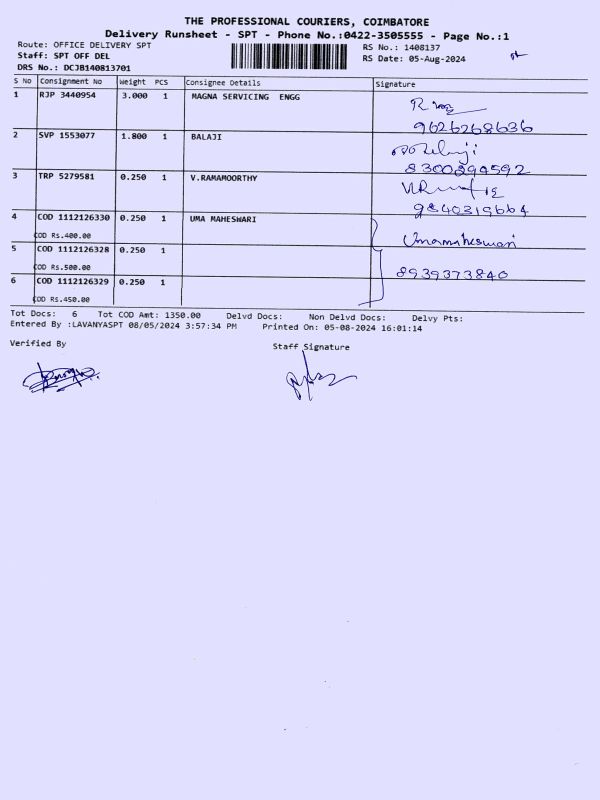 THE PROFESSIONAL COURIERS, COIMBATORE
Delivery Runsheet - SPT - Phone No.:0422-3505555 - Page No.:1
Route: OFFICE DELIVERY SPT
RS No.: 1408137
Staff: SPT OFF DEL
RS Date: 05-Aug-2024
DRS No.: DCJB140813701
S No Consignment No Weight PCS Consignee Details Signature
1 RJP 3440954 3.000 1 MAGNA SERVICING ENGG
9626268636
2 SVP 1553077 1.800 1 BALAJI
8300294592
3 TRP 5279581 0.250 1 V.RAMAMOORTHY
9840319664
4 COD 1112126330 0.250 1 UMA MAHESWARI Umamaheswari
COD Rs.400.00
5 COD 1112126328 0.250 1
COD Rs.500.00
8939373840
6 COD 1112126329 0.250 1
COD Rs.450.00
Tot Docs: 6 Tot COD Amt: 1350.00 Delvd Docs: Non Delvd Docs: Delvy Pts:
Entered By :LAVANYASPT 08/05/2024 3:57:34 PM Printed On: 05-08-2024 16:01:14
Verified By
Staff Signature